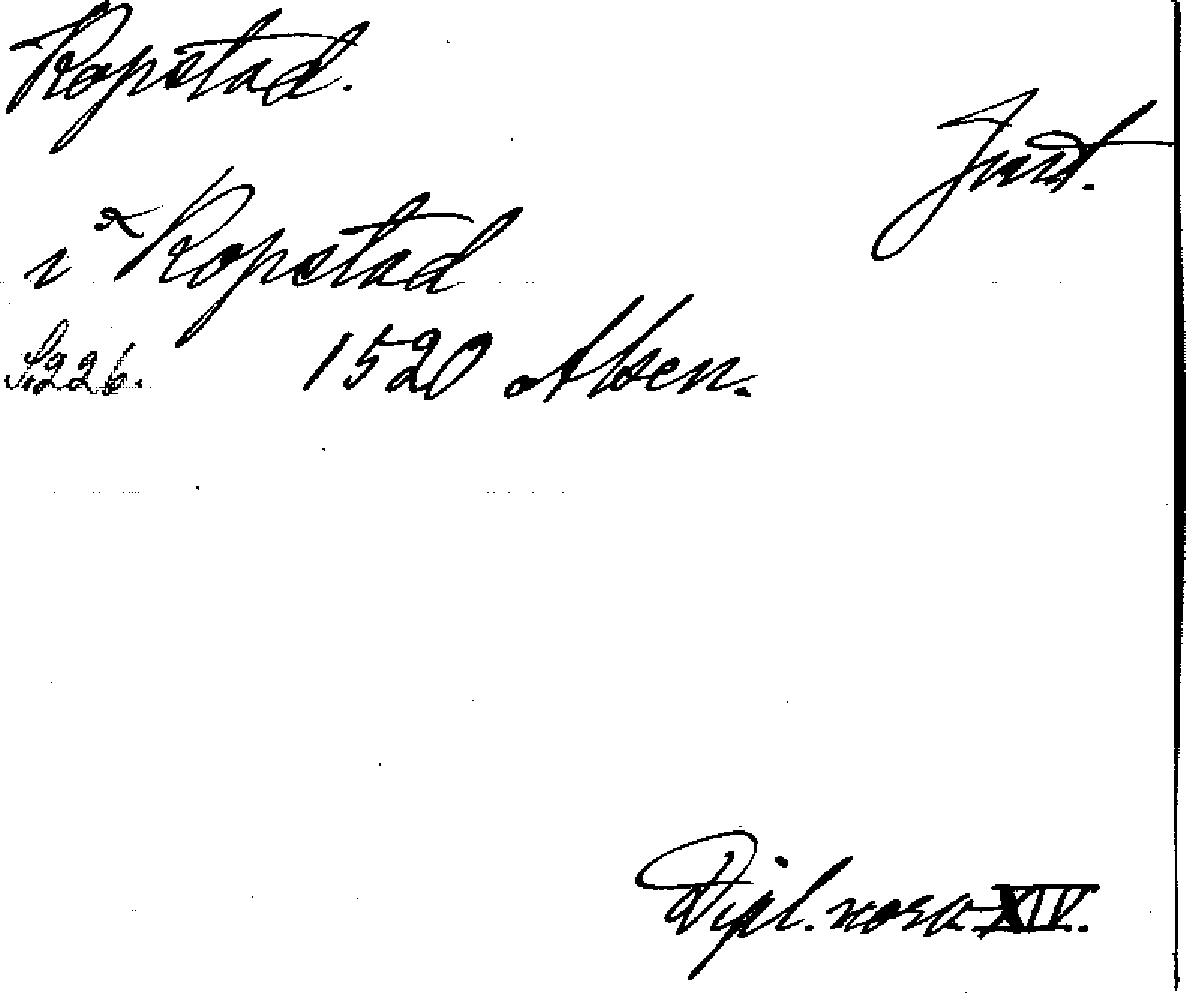 Kopstad.
Jmt.
i Kopstad
S. 226. 1520 Alsen.
Dipl. norv. XIV.